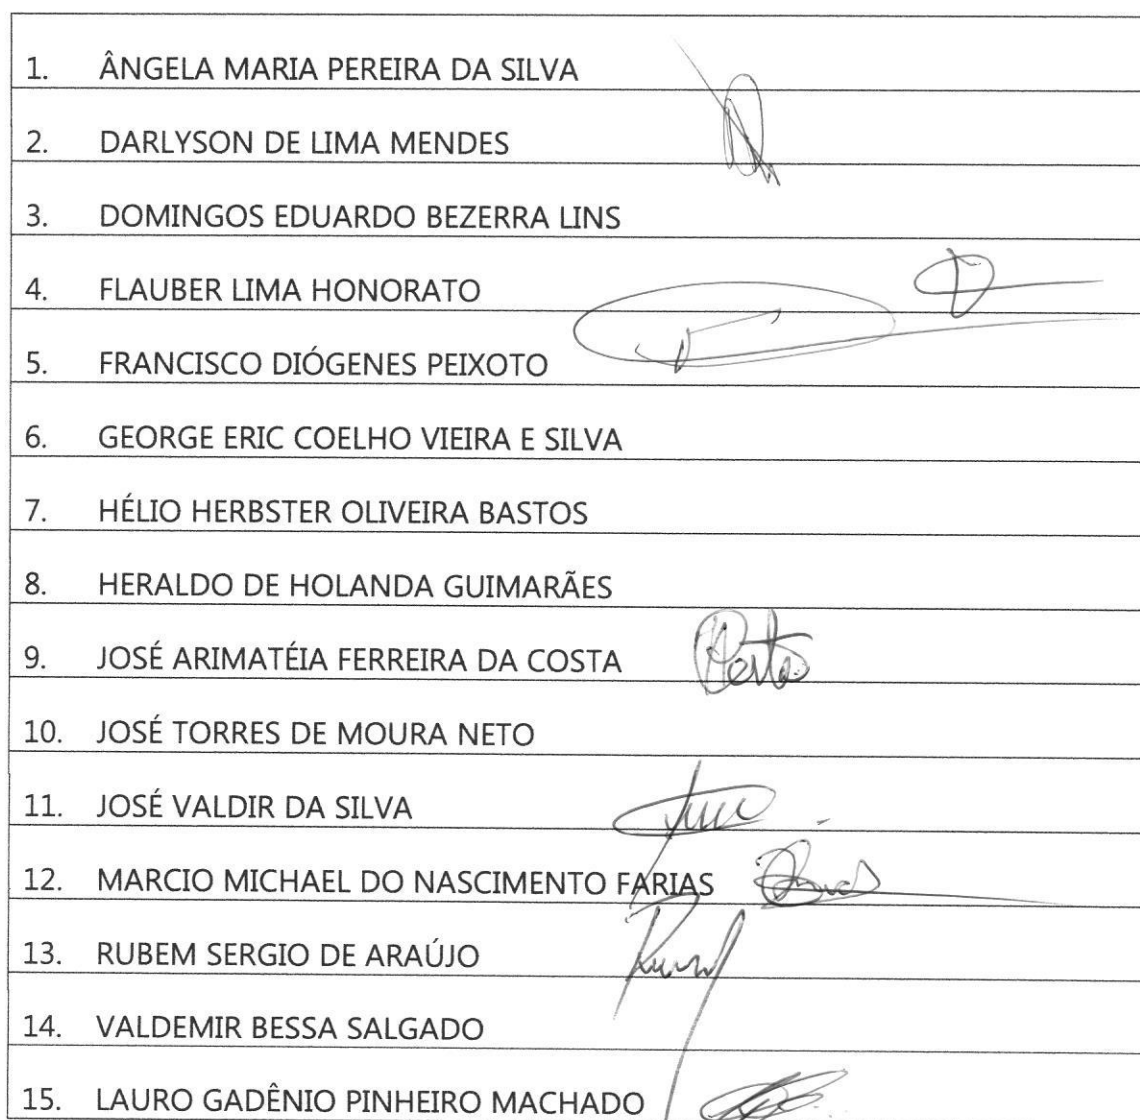 1. ÂNGELA MARIA PEREIRA DA SILVA
2. DARLYSON DE LIMA MENDES
3. DOMINGOS EDUARDO BEZERRA LINS
4. FLAUBER LIMA HONORATO
5. FRANCISCO DIÓGENES PEIXOTO
6. GEORGE ERIC COELHO VIEIRA E SILVA
7. HÉLIO HERBSTER OLIVEIRA BASTOS
8. HERALDO DE HOLANDA GUIMARÃES
9. JOSÉ ARIMATÉIA FERREIRA DA COSTA
10. JOSÉ TORRES DE MOURA NETO
11. JOSÉ VALDIR DA SILVA
12. MARCIO MICHAEL DO NASCIMENTO FARIAS
13. RUBEM SERGIO DE ARAÚJO
14. VALDEMIR BESSA SALGADO
15. LAURO GADÊNIO PINHEIRO MACHADO